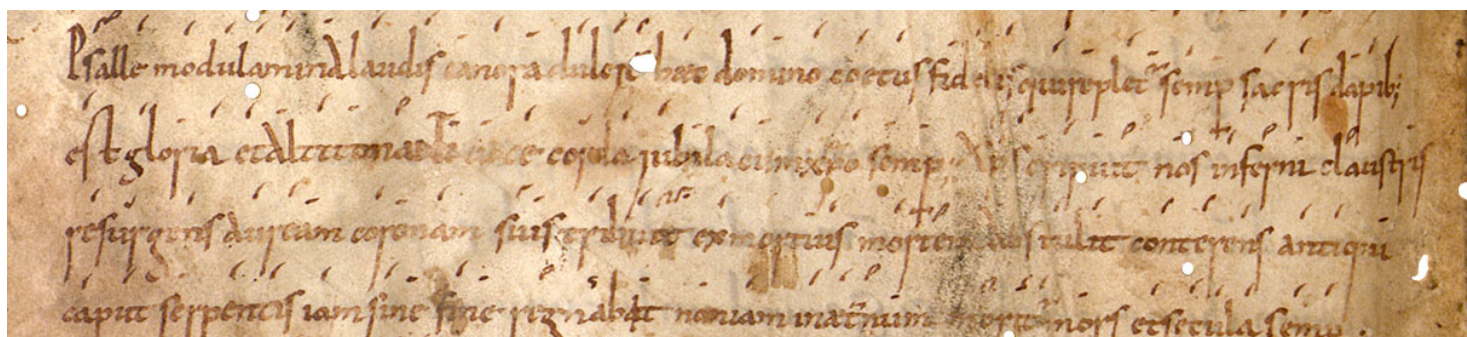 Psalle modulamina laudis canora dulce hoc domino coetus fidelis qui replet semp sacris dapib;
est gloria et altitonanti corda jubila cum xpo semp eripuit nos inferni claustris
resurgens auream coronam suis tribuit ex mortuis mortem abstulit conterens antiqui
caput serpentis iam sine fine regnabit non iam in aetnum mors et secula semp